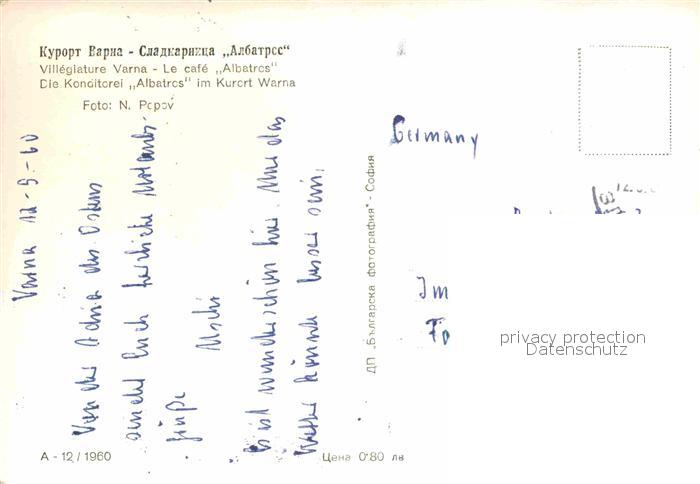 Курорт Варна - Сладкарница „Албатрос“
Villégiature Varna - Le café „Albatros“
Die Konditorei „Albatros“ im Kurort Warna
Foto: N. Popov
Varna 12-9.-60
Von der Adria des Ostens
sendet Euch herzliche Urlaubs-
grüße
Uschi
Es ist wunderschön hier. Nur das
Wetter könnte besser sein.
A - 12 / 1960
Цена 0·80 лв
ДП „Българска фотография“ - София
Germany
Im
privacy protection
Datenschutz